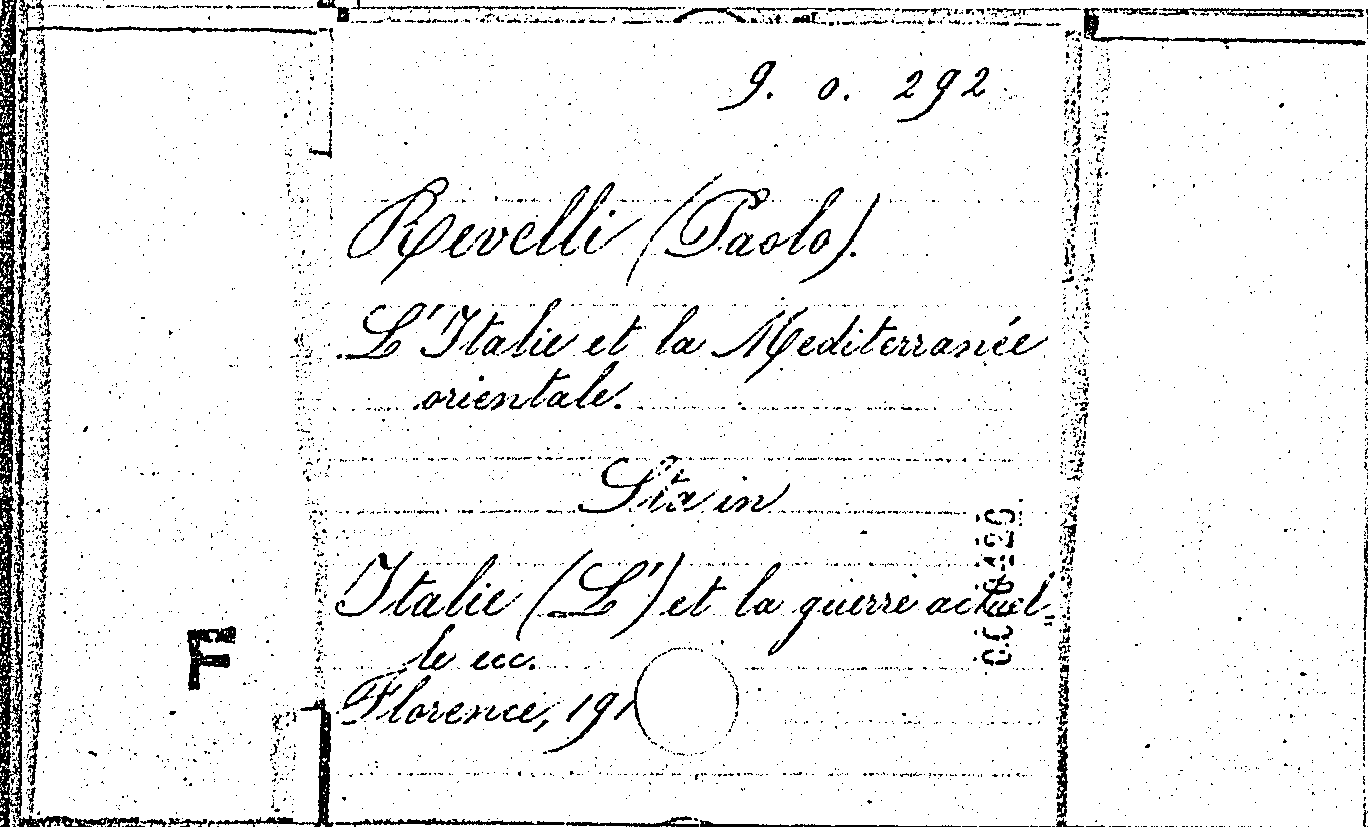 9. o. 292
Revelli (Paolo).
L'Italie et la Mediterranée
orientale.
Sta in
Italie (L') et la guerre actuel„
le ecc.
Florence, 191
F